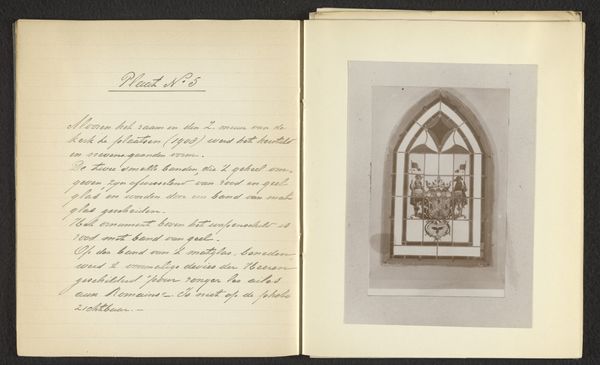 Plaat No. 5
Alvoren het raam in den Z. muur van de
kerk te plaatsen (1903) werd het hersteld
in nevens-gaanden vorm.
De twee smalle banden die 't geheel om-
geven zijn afwisselend van rood en geel
glas en worden door een band van mat
glas gescheiden.
Het ornament boven het wapenschild is
rood met band van geel.
Op den band van 't matglas, beneden
werd 't voormalige devies der Heeren
geschilderd "pour ranger les
aux Romains". Is niet op de photo
zichtbaar. —